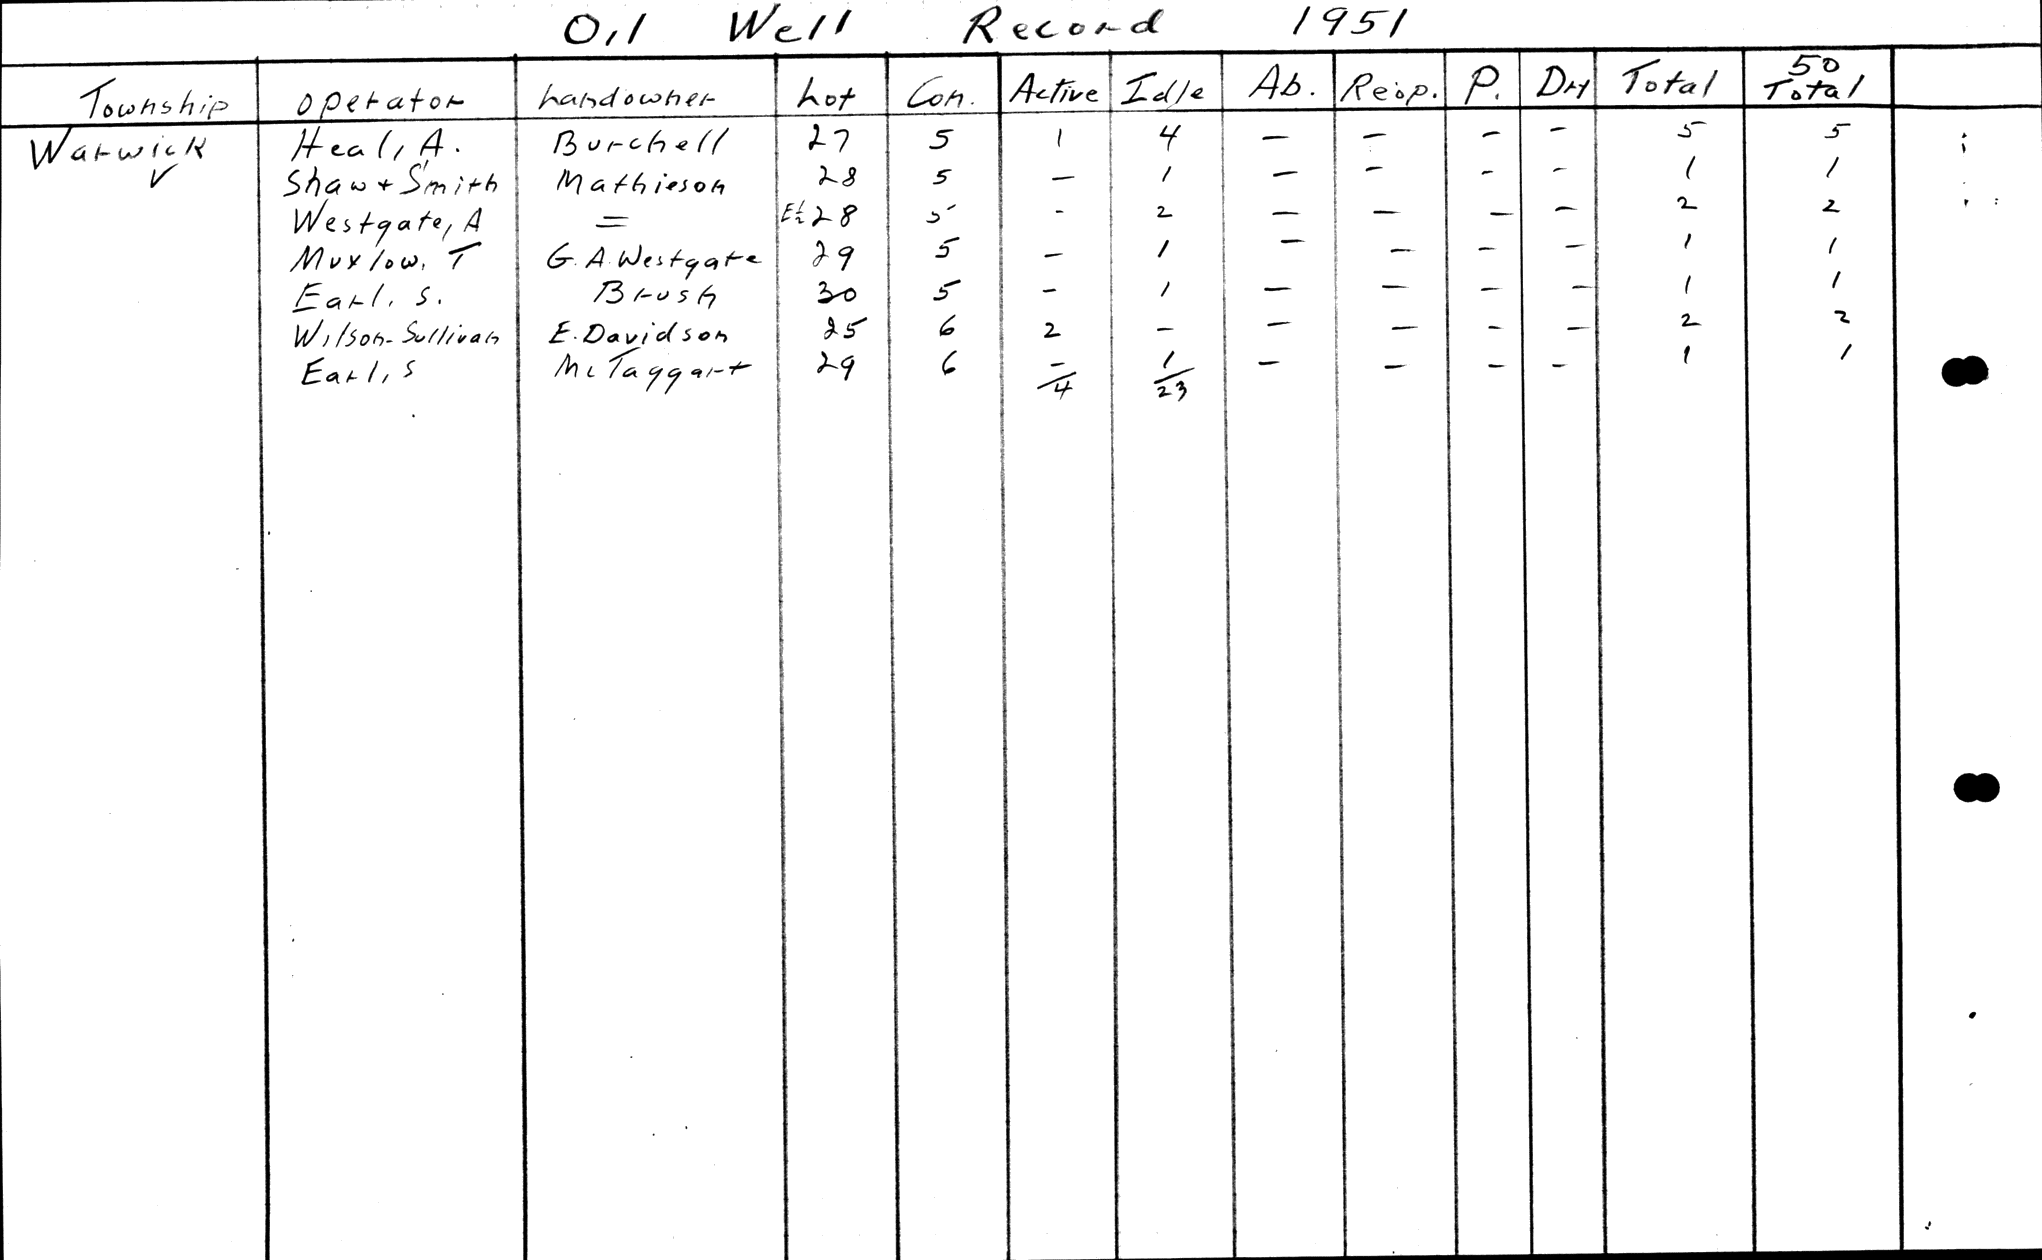 Oil Well Record 1951
Township Operator Landowner Lot Con. Active Idle Ab. Reop. P. Dry Total 50 Total
Warwick Heal, A. Burchell 27 5 1 4 — — — — 5 5
Shaw + Smith Mathieson 28 5 — 1 — — — — 1 1
Westgate, A = E½ 28 5 - 2 — — — — 2 2
Muxlow, T G. A. Westgate 29 5 — 1 — — — — 1 1
Earl, S. Brush 30 5 — 1 — — — — 1 1
Wilson-Sullivan E. Davidson 25 6 2 — — — — — 2 2
Earl, S McTaggart 29 6 — 1 — — — — 1 1
4 23